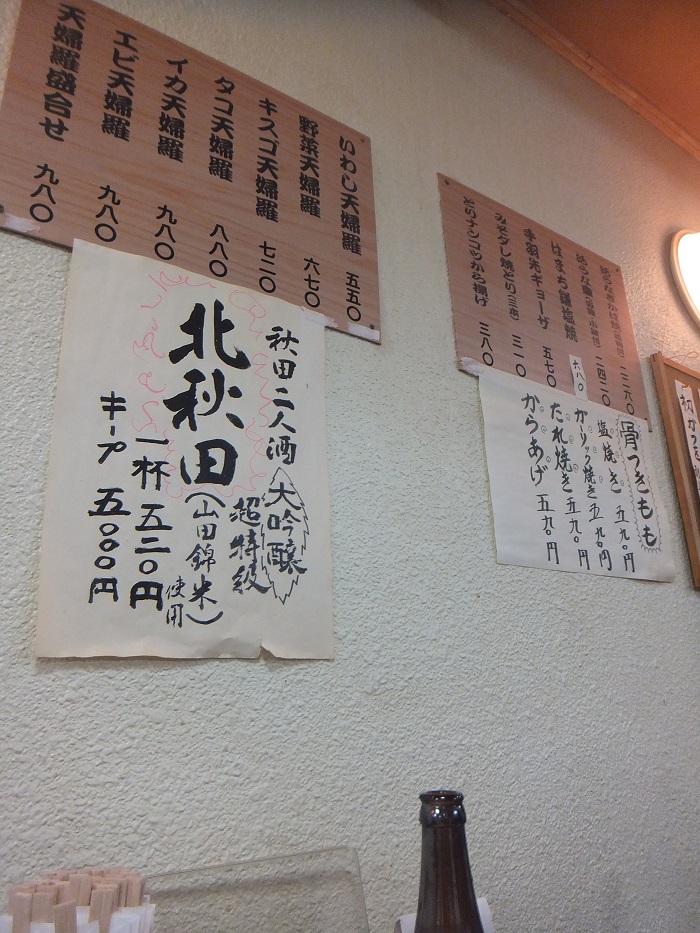 いわし天婦羅 五五〇
野菜天婦羅 六七〇
キスゴ天婦羅 七二〇
タコ天婦羅 八八〇
イカ天婦羅 九八〇
エビ天婦羅 九八〇
天婦羅盛合せ 九八〇
秋田二人酒 大吟醸
超特級
北秋田(山田錦米)使用
一杯 五二〇円
キープ 五〇〇〇円
二二六〇
二四二〇
はまち鎌塩焼
六八〇
手羽先ギョーザ 五七〇
みそダレ焼とり(三本) 三一〇
とりナンコツから揚げ 三八〇
骨つきもも
塩焼き 五九〇円
ガーリック焼き 五九〇円
たれ焼き 五九〇円
からあげ 五九〇円
初かつを